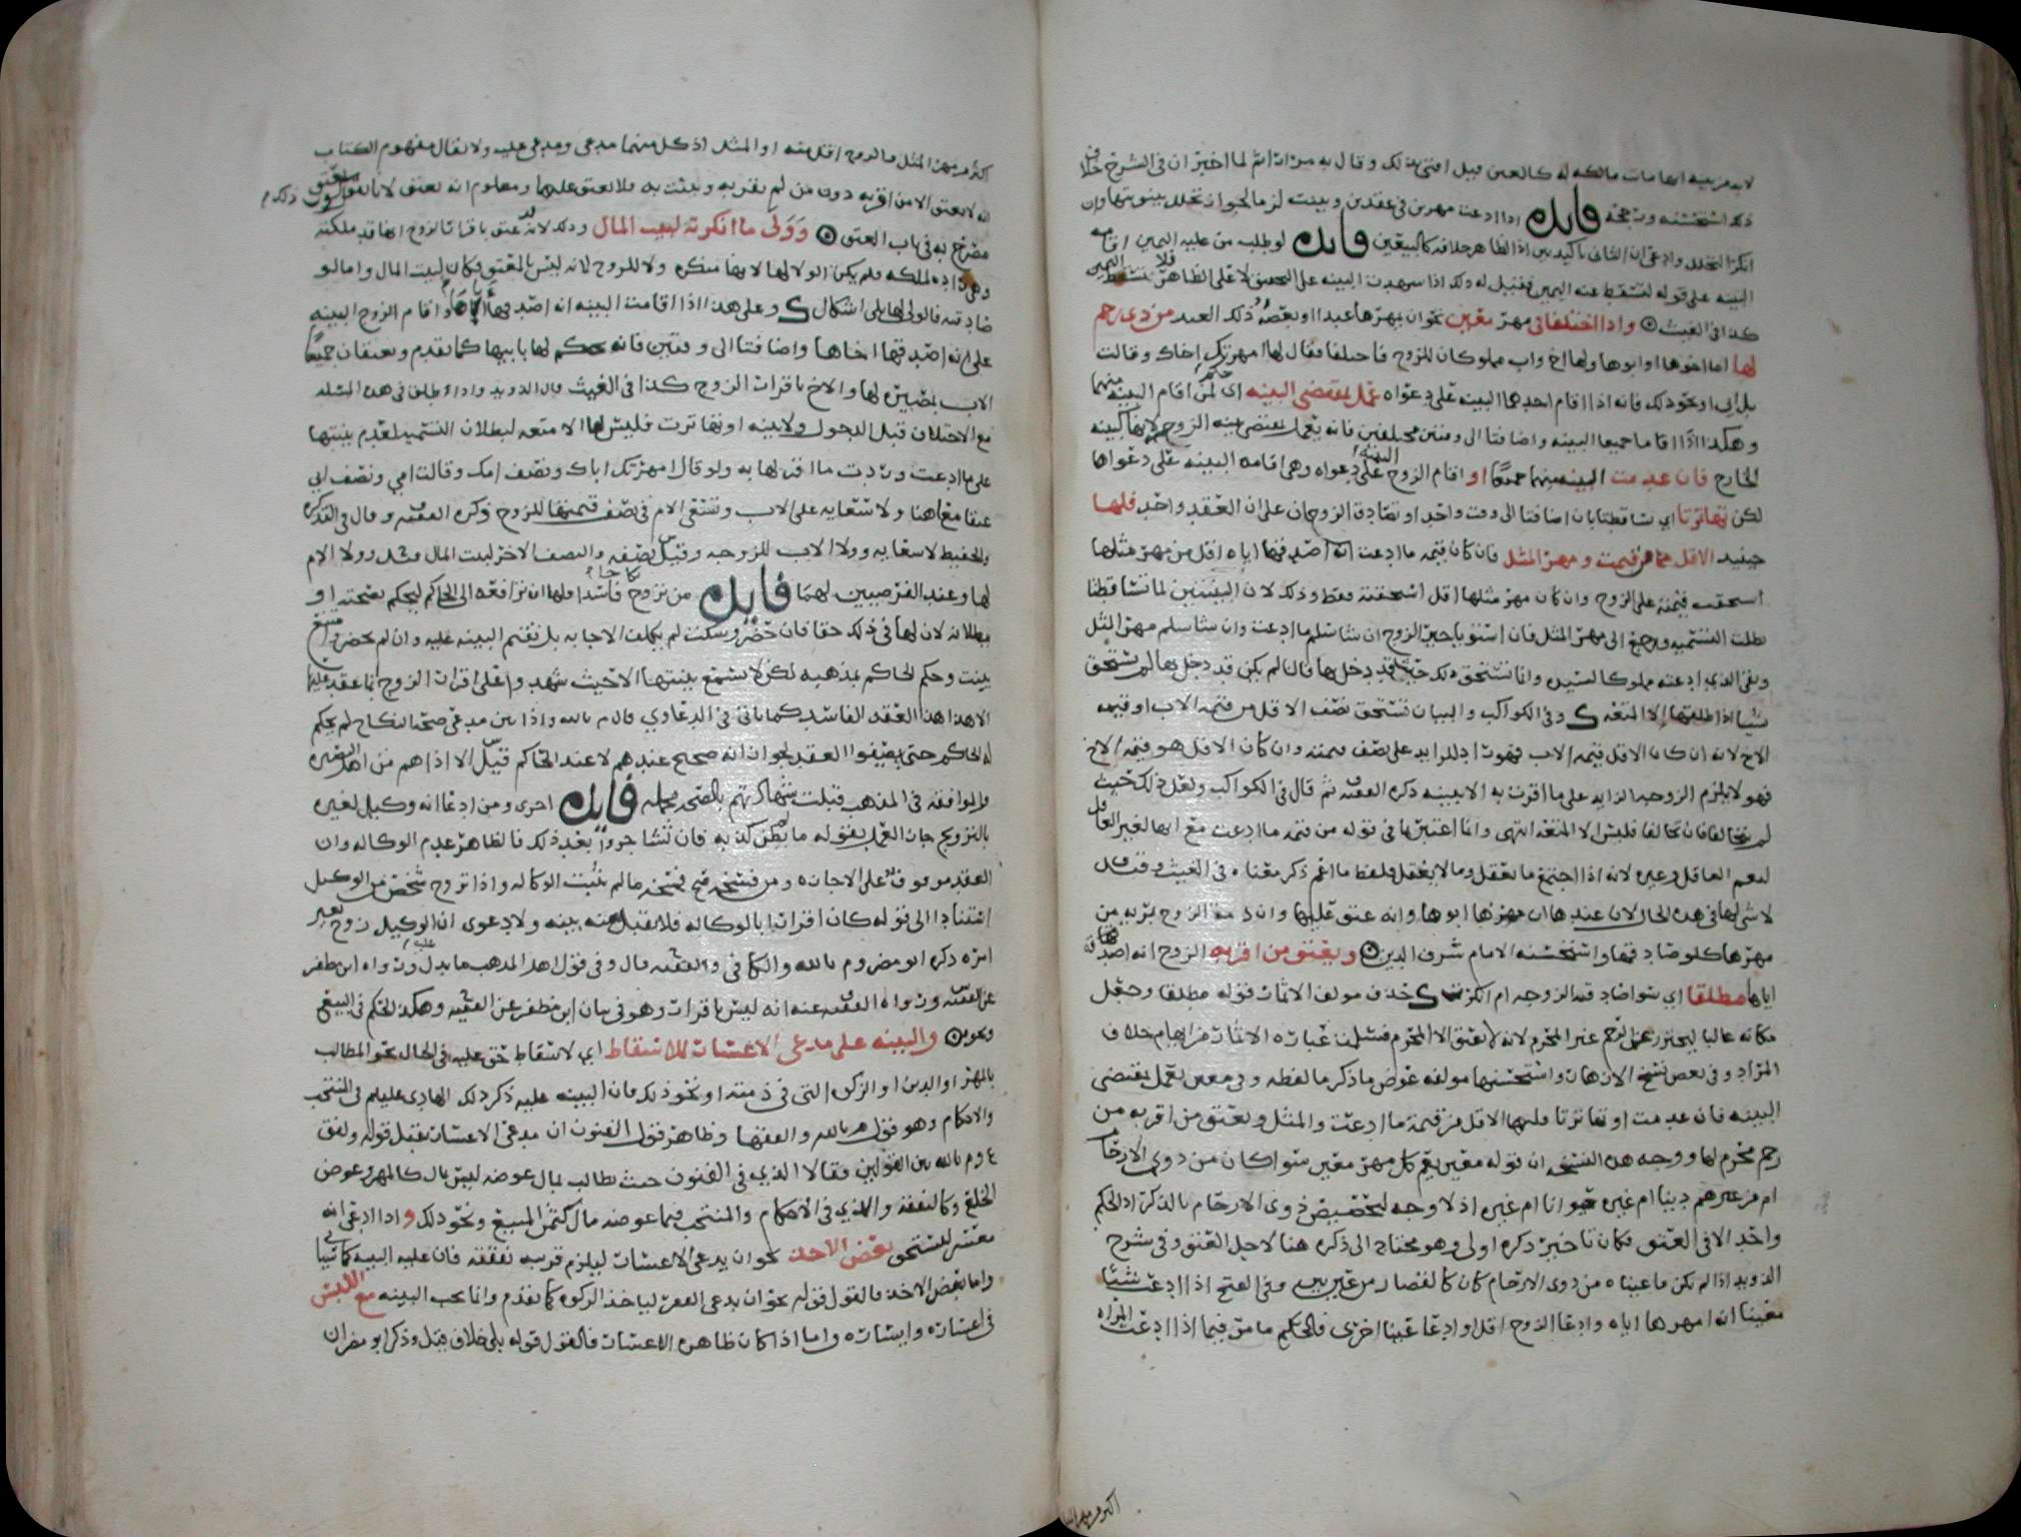 لانه مزيفيه انها مات مالكه له كالعين قبل افتى بذلك وقال به مرارا ثم لما اخبر ان في الشرح خلاف
ذلك استحسنه ورجحه فايده اذا ادعت مهرين في عقدين وبينت لزما لجواز تخلل بينونتها وان
انكر التخلل وادعى ان الثاني تاكيد بين اذ الظاهر خلافه كالبيعين فايده لو طلب من عليه اليمين اقامه
البينه على قوله لتسقط عنه اليمين فقيل له ذلك اذا شهدت البينه على التحقيق لا على الظاهر فلا تسقط اليمين
كذا في الغيث واذا اختلفا في مهر معين نحو ان يمهرها عبدا او بعضه وذلك العبد من ذي رحم
لها اما اخوها او ابوها ولها اخ واب مملوكان للزوج فاختلفا فقال لها امهرتك اخاك وقالت
بل ابي او نحو ذلك فانه اذا اقام احدهما البينه على دعواه عمل بمقتضى البينه اي حكم لمن اقام البينه منهما
وهكذا اذا اقاما جميعا البينه واضافتا الى وقتين مختلفين فانه يعمل بمقتضى بينه الزوجه لانها كبينه
الخارج فان عدمت البينه منهما جميعا او اقام الزوج البينه على دعواه وهي اقامه البينه على دعواها
لكن تهاترتا اي تساقطتا بان اضافتا الى وقت واحد او تصادق الزوجان على ان العقد واحد فلها
حينيذ الاقل من قيمت ومهر المثل فان كان قيمه ما ادعت انه اصدقها اياه اقل من مهر مثلها
استحقت قيمته على الزوج وان كان مهر مثلها اقل استحقته فقط وذلك لان البينتين لما تساقطتا
بطلت التسميه ورجع الى مهر المثل فان استويا خير الزوج ان شا سلم ما ادعت وان شا سلم مهر المثل
وبقي الذي ادعته مملوكا لسيده وانما تستحق ذلك حيث قد دخل بها فان لم يكن قد دخل بها لم تستحق
شيا اذا طلقها الا المتعه ك وفي الكواكب والبيان تستحق نصف الاقل من قيمه الاب او قيمه
الاخ لانه ان كان الاقل قيمه الاب فهو اذ الزايد على نصف قيمته وان كان الاقل هو قيمه الاخ
فهو لا يلزم الزوجه الزايد على ما اقرت به الا ببينه ذكره الفقيه ثم قال في الكواكب ولعل ذلك حيث
لم يتحالفا فان تحالفا فليس الا المتعه انتهى وانما اعتبرنا في قوله من قيمه ما ادعت مع انها لغير العاقل
لتعم العاقل وغيره لانه اذا اجتمع ما يعقل وما لا يعقل فلفظ ما اعم ذكر معناه في الغيث وقيل
لا شي لها في هذه الحال لان عندها ان مهرها ابوها وانه عتق عليها وان ذمه الزوج بريه من
مهرها كلو صادقها واستحسنه الامام شرف الدين ويعتق من اقر به الزوج انه اصدقها
اياه مطلقا اي سوا صادقته الزوجه ام انكرته ك حذف مولف الاثمار قوله مطلقا وجعل
مكانه غالبا ليحترز عن الرحم غير المحرم لانه لا يعتق الا المحرم فسلمت عبارة الاثمار من ايهام خلاف
المراد وفي بعض نسخ الازهار واستحسنها مولفه عوض ما ذكر ما لفظه وفي معين يعمل بمقتضى
البينه فان عدمت او تهاترتا فلها الاقل من قيمة ما ادعت والمثل ويعتق من اقر به من
رحم محرم لها ووجه هذه النسخه ان قوله معين يعم كل مهر معين سوا كان من ذوي الارحام
ام من غيرهم دينا ام غيره حيوانا ام غيره اذ لا وجه لتخصيص ذوي الارحام بالذكر اذ الحكم
واحد الا في العتق فكان تاخير ذكره اولى وهو محتاج الى ذكره هنا لاجل العتق وفي شرح
الدويد اذا لم يكن ما عيناه من ذوي الارحام كان كالقصار من غير بين وفي الفتح اذا ادعت شيا
معينا انه امهرها اياه وادعا الزوج اقل او ادعا عينا اخرى فالحكم ما مر فيما اذا ادعت المراه
اكثر من مهر المثل
اكثر من مهر المثل والزوج اقل منه او المثل اذ كل منهما مدعي ومدعى عليه ولا يقال مفهوم الكتاب
انه لا يعتق الا من اقر به دون من لم يقر به وبينت به فلا يعتق عليها ومعلوم انه يعتق لانا نقول سكت ذلك
مصرح به في باب العتق وولى ما انكرته لبيت المال وذلك لانه عتق باقرار الزوج انها قد ملكته
وهي راده لملكه فلم يكن الولا لها لانها منكره ولا للزوج لانه ليس بالمعتق فكان لبيت المال واما لو
صادقته فالولى لها بلى اشكال ك وعلى هذا اذا اقامت البينه انه اصدقها اباها واقام الزوج البينه
على انه اصدقها اخاها واضافتا الى وقتين فانه يحكم لها بابيها كما تقدم ويعتقان جميعا
الاب بمصيره لها والاخ باقرار الزوج كذا في الغيث قال الدويد واذا طلق في هذه المسله
مع الاختلاف قبل الدخول ولا بينه او تهاترت فليس لها الا متعه لبطلان التسميه لعدم بينتها
على ما ادعت وردت ما اقر لها به ولو قال امهرتك اباك ونصف امك وقالت امي ونصف ابي
عتقا معا هنا ولا سعايه على الاب وتسعى الام في نصف قيمتها للزوج ذكره الفقيه وقال في التذكره
والحفيظ لا سعايه وولا الاب للزوجه وقيل نصفه والنصف الاخر لبيت المال ومثله ولا الام
لها وعند الفرضيين لهما فايده من تزوج نكاحا فاسدا فلها ان ترافعه الى الحاكم ليحكم بصحته او
بطلانه لان لها في ذلك حقا فان حضر وسكت لم يكلف الاجابه بل تقيم البينه عليه وان لم يحضر
بينت وحكم الحاكم بمذهبه لكن لا تسمع بينتها الا حيث شهدوا على اقرار الزوج انما عقد عليها
الا هذا هذا العقد الفاسد كما ياتي في الدعاوي قال م بالله واذا بين مدعي صحة النكاح لم يحكم
له الحاكم حتى يضيفوا العقد لجواز انه صحيح عندهم لا عند الحاكم قيل الا اذا هم من اهل البصيره
والموافقه في المذهب قبلت شهادتهم بالصحه مجمله فايده اخرى ومن ادعا انه وكيل لغيره
بالتزويج جاز العمل بقوله ما لم يظن كذبه فان تشاجروا بعد ذلك فالظاهر عدم الوكاله وان
العقد موقوف على الاجازه ومن فسخه فيه فسخه ما لم تثبت الوكاله واذا تزوج شخص من الوكيل
استنادا الى قوله كان اقرارا بالوكاله فلا تقبل منه بينه ولا دعوى ان الوكيل زوج بغير
امره ذكره ابو مضر و م بالله والكافي والفقيه قال وفي قول اهل المذهب ما يدل ورواه ابن مظفر
عن الفقيه ورواه الفقيه عنه انه ليس باقرار وهو في بيان ابن مظفر عن الفقيه وهكذا الحكم في البيع
ونحوه والبينه على مدعي الاعسار للاسقاط اي لاسقاط حق عليه في الحال نحو المطالب
بالمهر او الدين او الزكوه التي في ذمته او نحو ذلك فان البينه عليه ذكر ذلك الهادي عليلم في المنتخب
والاحكام وهو قول م بالله والفقها وظاهر قول الفنون ان مدعي الاعسار يقبل قوله ولفق
ع و م بالله بين القولين فقالا الذي في الفنون حيث يطالب بمال عوضه ليس بمال كالمهر وعوض
الخلع وكالنفقه والذي في الاحكام والمنتخب فيما عوضه مال كثمن المبيع ونحو ذلك واذا ادعى انه
معسر ليستحق بعض الاخذ نحو ان يدعي الاعسار ليلزم قريبه نفقته فان عليه البينه كما سياتي
واما بعض الاخذ فالقول قوله نحو ان يدعي الفقر لياخذ الزكوه كما تقدم وانما تجب البينه مع اللبس
في اعساره وايساره واما اذا كان ظاهره الاعسار فالقول قوله بلى خلاف قيل وذكر ابو مضر ان